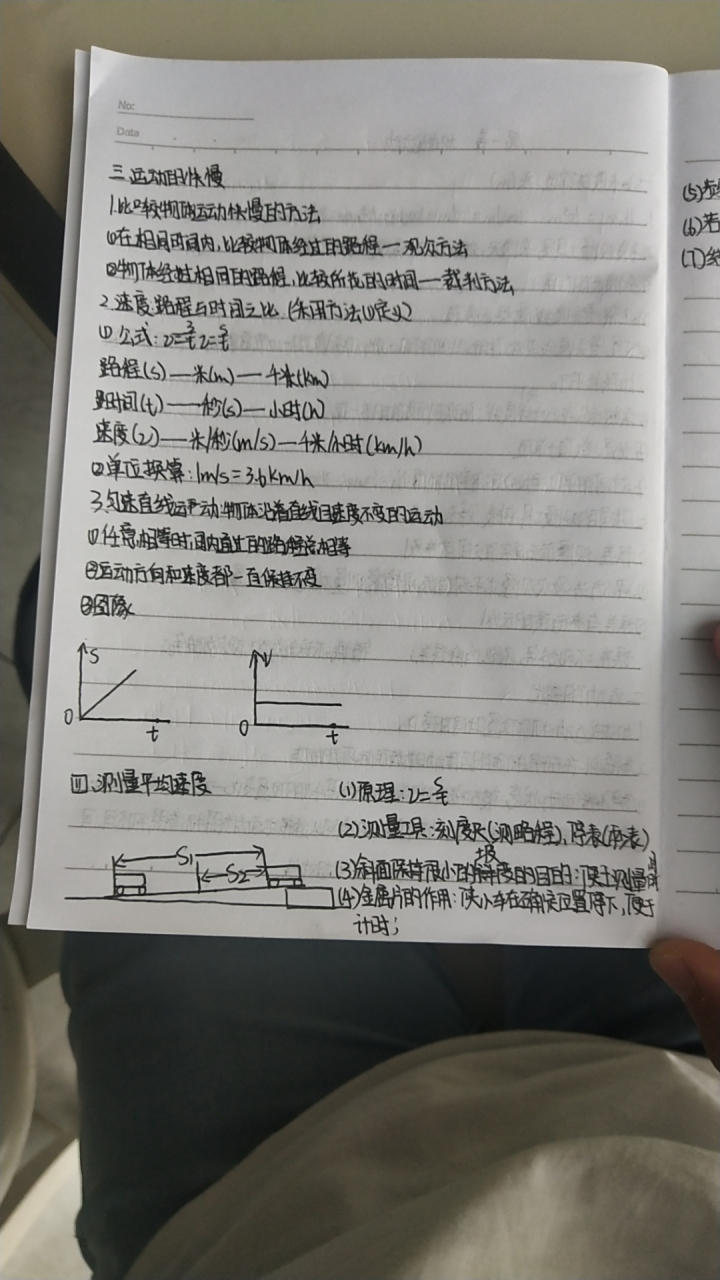 No:
Data
三.运动的快慢
1.比较物体运动快慢的方法
①在相同时间内,比较物体经过的路程一观众方法
②物体经过相同的路程,比较所花的时间一裁判方法
2.速度:路程与时间之比.(采用方法①定义)
① 公式: v=s/t v=s/t
路程(s)—米(m)—千米(km)
时间(t)—秒(s)—小时(h)
速度(v)—米/秒(m/s)—千米/小时(km/h)
②单位换算:1m/s=3.6km/h
3.匀速直线运动:物体沿着直线且速度不变的运动
①任意相等时间内通过的路程总相等
②运动方向和速度都一直保持不变
③图像
S
0
t
V
0
t
四.测量平均速度
(1)原理:v=s/t
(2)测量工具:刻度尺(测路程),停表(
(3)斜面保持很小的坡度的目的:便于测量时间
(4)金属片的作用:使小车在确定位置停下,便于
计时;
S1
S2
(5)
(6)若
(7)